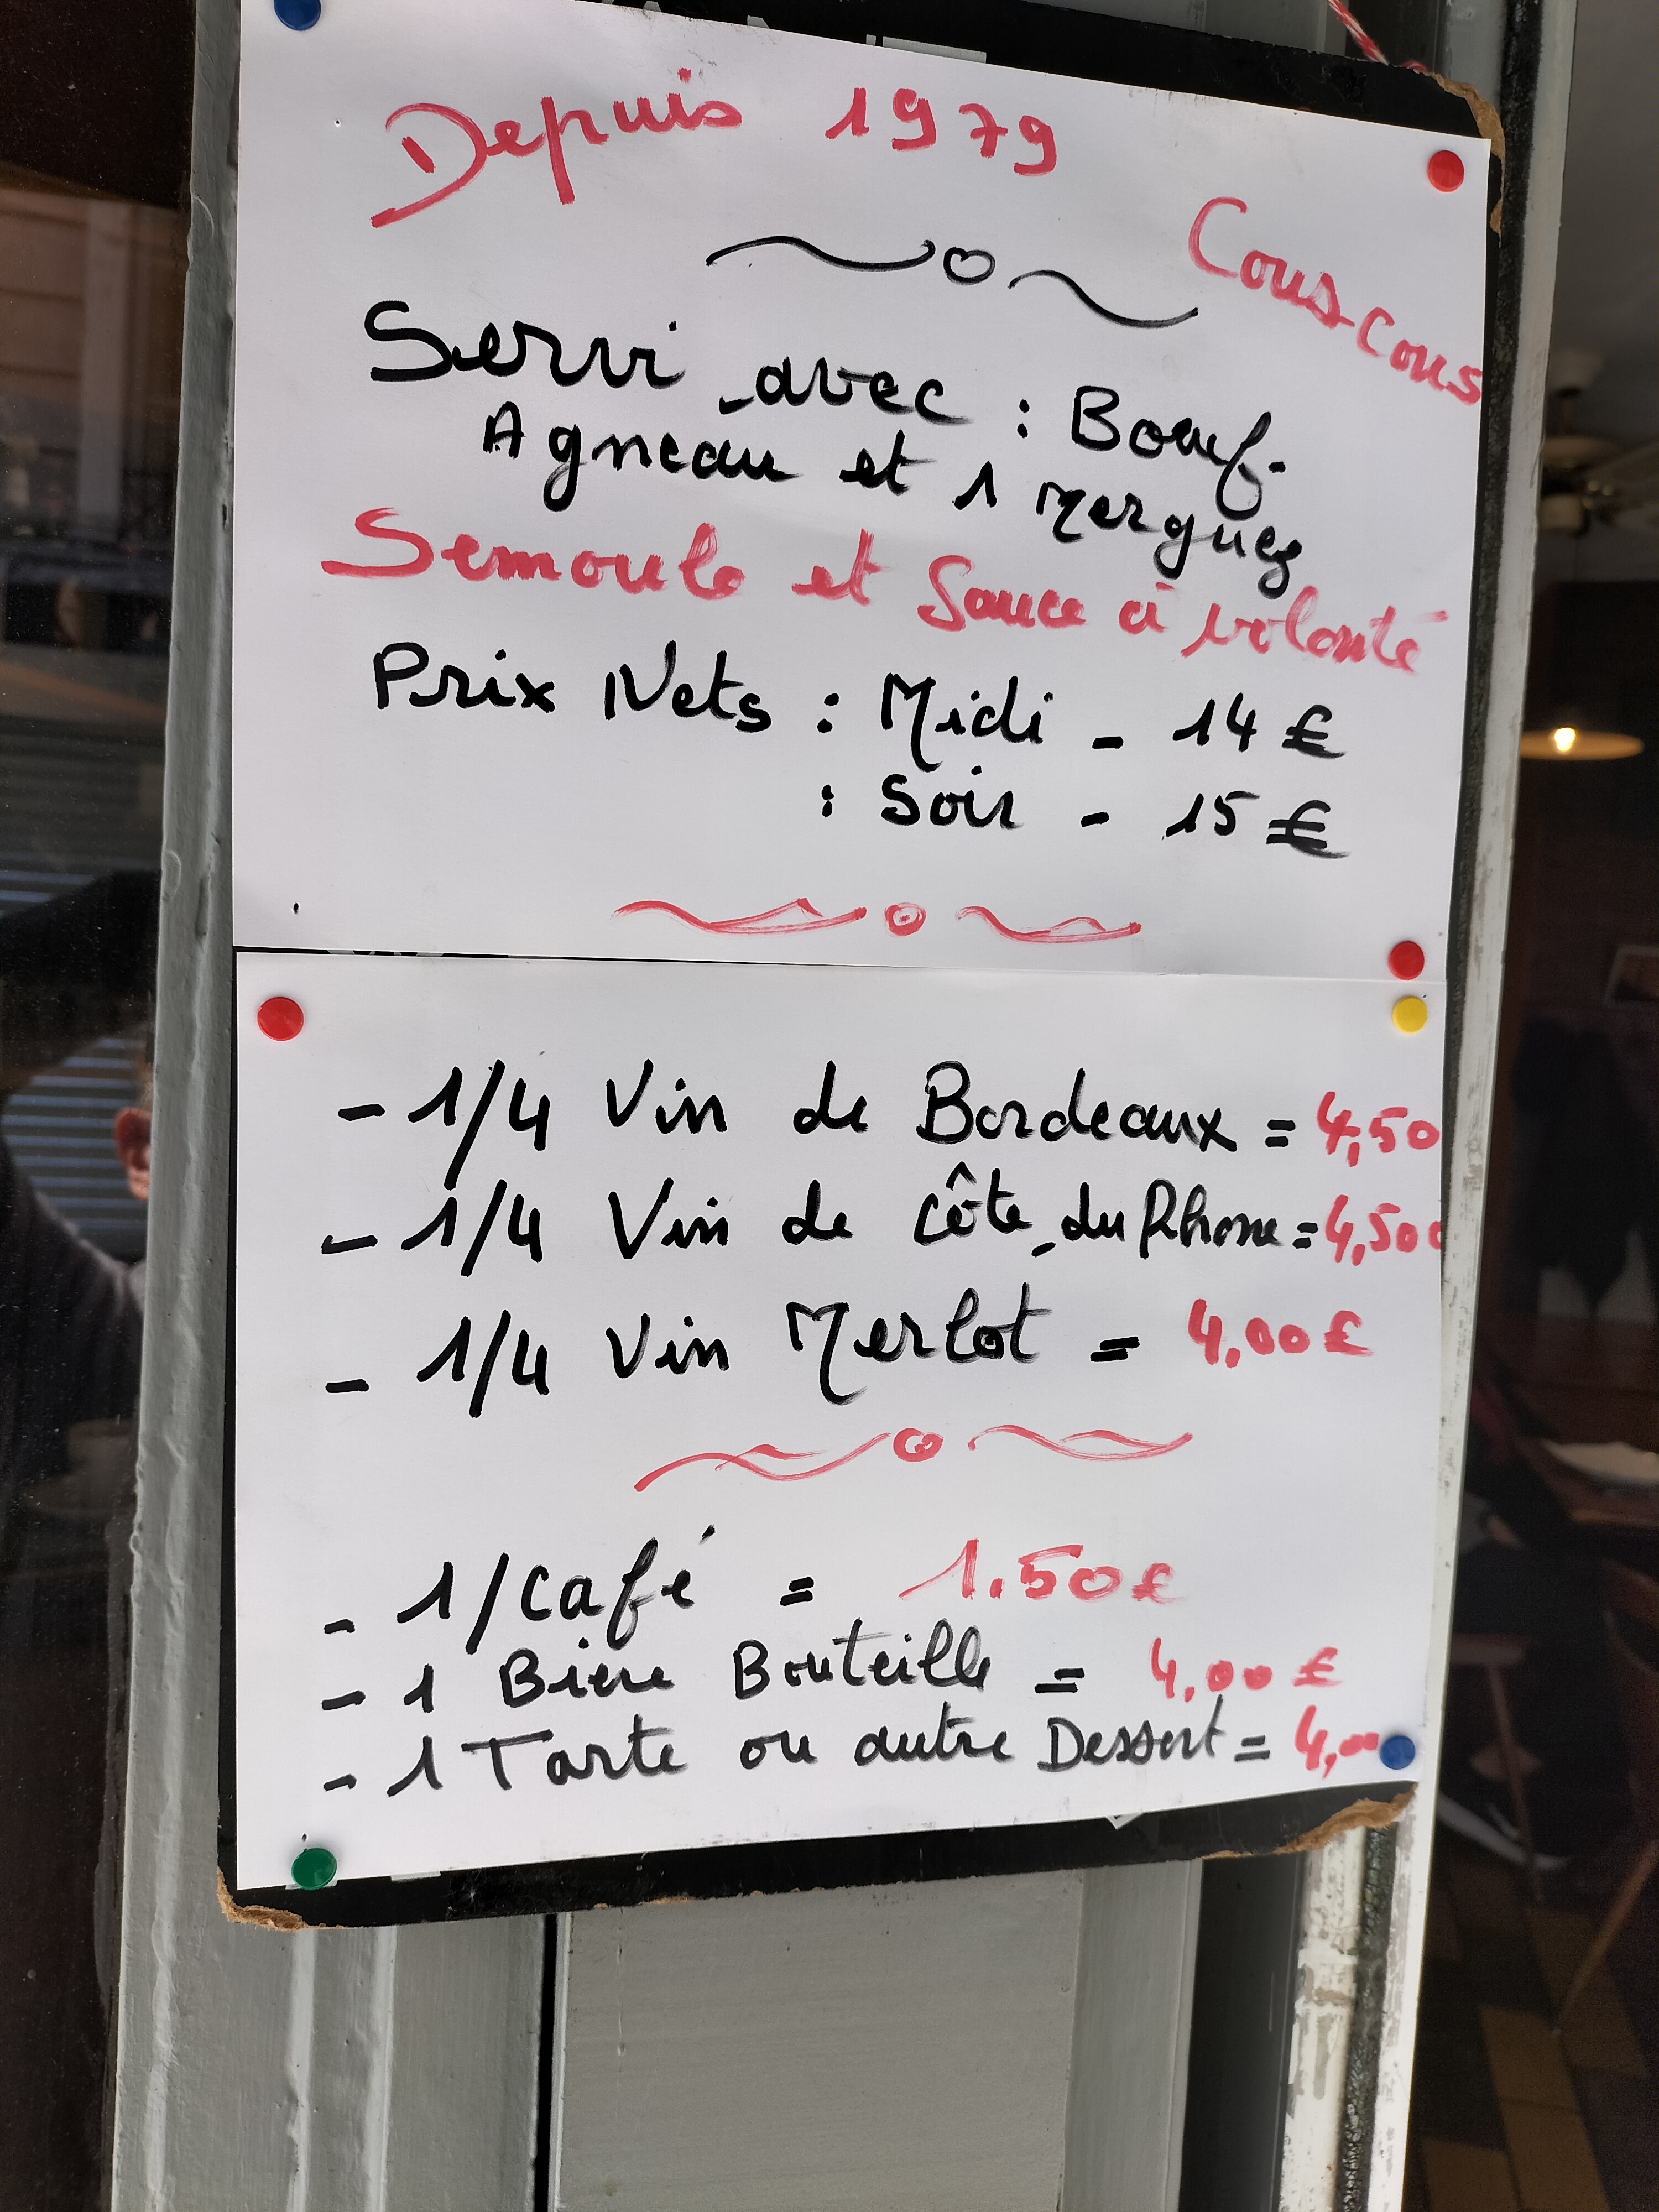 Depuis 1979
Cous-Cous
Servi avec : Boeuf.
Agneau et 1 Merguez
Semoule et Sauce à volonté
Prix Nets : Midi - 14 €
: Soir - 15 €
- 1/4 Vin de Bordeaux = 4,50
- 1/4 Vin de Côte du Rhone = 4,50€
- 1/4 Vin Merlot = 4,00 €
- 1/Café = 1.50 €
- 1 Biere Bouteille = 4,00 €
- 1 Tarte ou autre Dessert = 4,00